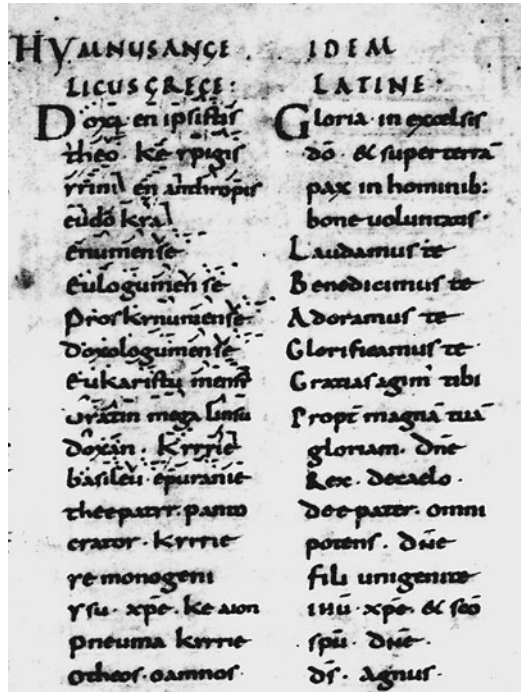 HYMNUSANGE
LICUSGRECE:
Doxa en ipsistis
theo ke ypigis
yrini en anthropis
eudokya
enumense
Eulogumen se
Proskynumense
doxologumense
Eukaristumense
mega
doxan. Kyrrie
basileu epuranie
theepatyr. panto
crator. Kyrrie
ye monogeni
ysu. xpē. Ke aion
pneuma Kyrrie
otheos. oamnos.
IDEM
LATINE.
Gloria in excelsis
dō. & superterrā
pax in hominib:
bone voluntatis.
Laudamus te
Benedicimus te
Adoramus te
Glorificamus te
Gratias agim tibi
Propt magnā tuā
gloriam. dnē
Rex. decaelo.
deepater. omni
potens. dnē
fili unigenite
ihū. xpē. & scō
spū. dnē.
ds. Agnus.